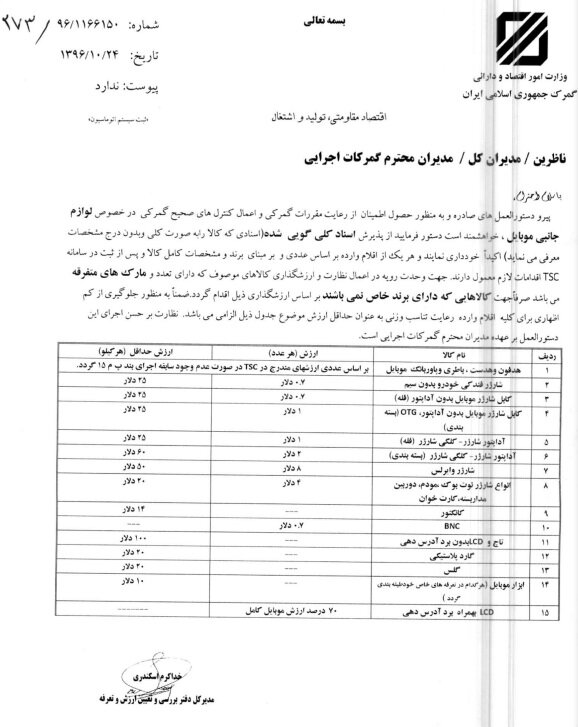 بسمه تعالی
شماره: ۹۶/۱۱۶۶۱۵۰ / ۲۷۳
تاریخ: ۱۳۹۶/۱۰/۲۴
پیوست: ندارد
«ثبت سیستم اتوماسیون»
وزارت امور اقتصاد و دارائی
گمرک جمهوری اسلامی ایران
اقتصاد مقاومتی، تولید و اشتغال
ناظرین / مدیران کل / مدیران محترم گمرکات اجرایی
با سلام و احترام،
پیرو دستورالعمل های صادره و به منظور حصول اطمینان از رعایت مقررات گمرکی و اعمال کنترل های صحیح گمرکی در خصوص لوازم
جانبی موبایل ، خواهشمند است دستور فرمایید از پذیرش اسناد کلی گویی شده(اسنادی که کالا رابه صورت کلی وبدون درج مشخصات
معرفی می نماید) اکیداً خودداری نمایند و هر یک از اقلام وارده بر اساس عددی و بر مبنای برند و مشخصات کامل کالا و پس از ثبت در سامانه
TSC اقدامات لازم معمول دارند. جهت وحدت رویه در اعمال نظارت و ارزشگذاری کالاهای موصوف که دارای تعدد و مارک های متفرقه
می باشد صرفاًجهت کالاهایی که دارای برند خاص نمی باشند بر اساس ارزشگذاری ذیل اقدام گردد.ضمناً به منظور جلوگیری از کم
اظهاری برای کلیه اقلام وارده رعایت تناسب وزنی به عنوان حداقل ارزش موضوع جدول ذیل الزامی می باشد. نظارت بر حسن اجرای این
دستورالعمل بر عهده مدیران محترم گمرکات اجرایی است.
ردیف نام کالا ارزش (هر عدد) ارزش حداقل (هرکیلو)
۱ هدفون وهدست ، باطری وپاوربانک موبایل بر اساس عددی ارزشهای مندرج در TSC در صورت عدم وجود سابقه اجرای بند ب م ۱۵ گردد.
۲ شارژر فندکی خودرو بدون سیم ۰.۷ دلار ۲۵ دلار
۳ کابل شارژر موبایل بدون آداپتور (فله) ۰.۷ دلار ۲۵ دلار
۴ کابل شارژر موبایل بدون آداپتور، OTG (بسته ۱ دلار ۲۵ دلار
بندی)
۵ آداپتور شارژر- کلگی شارژر (فله) ۱ دلار ۲۵ دلار
۶ آداپتور شارژر- کلگی شارژر (بسته بندی) ۲ دلار ۶۰ دلار
۷ شارژر وایرلس ۸ دلار ۵۰ دلار
۸ انواع شارژر نوت بوک ،مودم، دوربین ۴ دلار ۲۰ دلار
مداربسته،کارت خوان
۹ کانکتور --- ۱۴ دلار
۱۰ BNC ۰.۷ دلار ---
۱۱ تاچ و LCDبدون برد آدرس دهی --- ۱۰۰ دلار
۱۲ گارد پلاستیکی --- ۲۰ دلار
۱۳ گلس --- ۲۰ دلار
۱۴ ابزار موبایل (هرکدام در تعرفه های خاص خودطبقه بندی --- ۱۰ دلار
گردد )
۱۵ LCD بهمراه برد آدرس دهی ۷۰ درصد ارزش موبایل کامل -------
خداکرم اسکندری
مدیرکل دفتر بررسی و تعیین ارزش و تعرفه